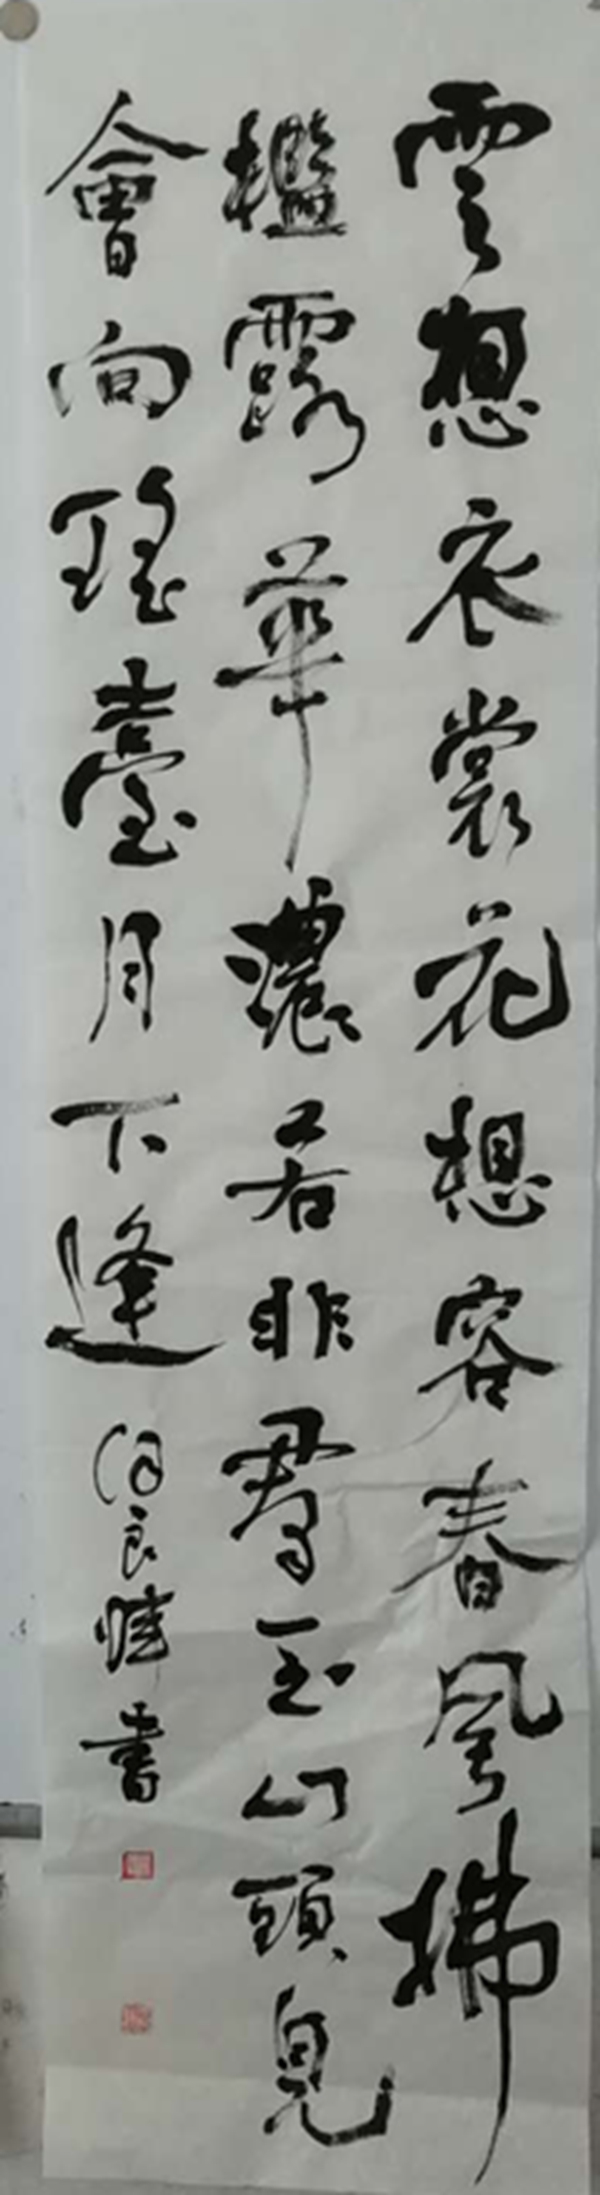 雲想衣裳花想容春風拂
檻露華濃若非羣玉山頭見
會向瑤臺月下逢 良 書